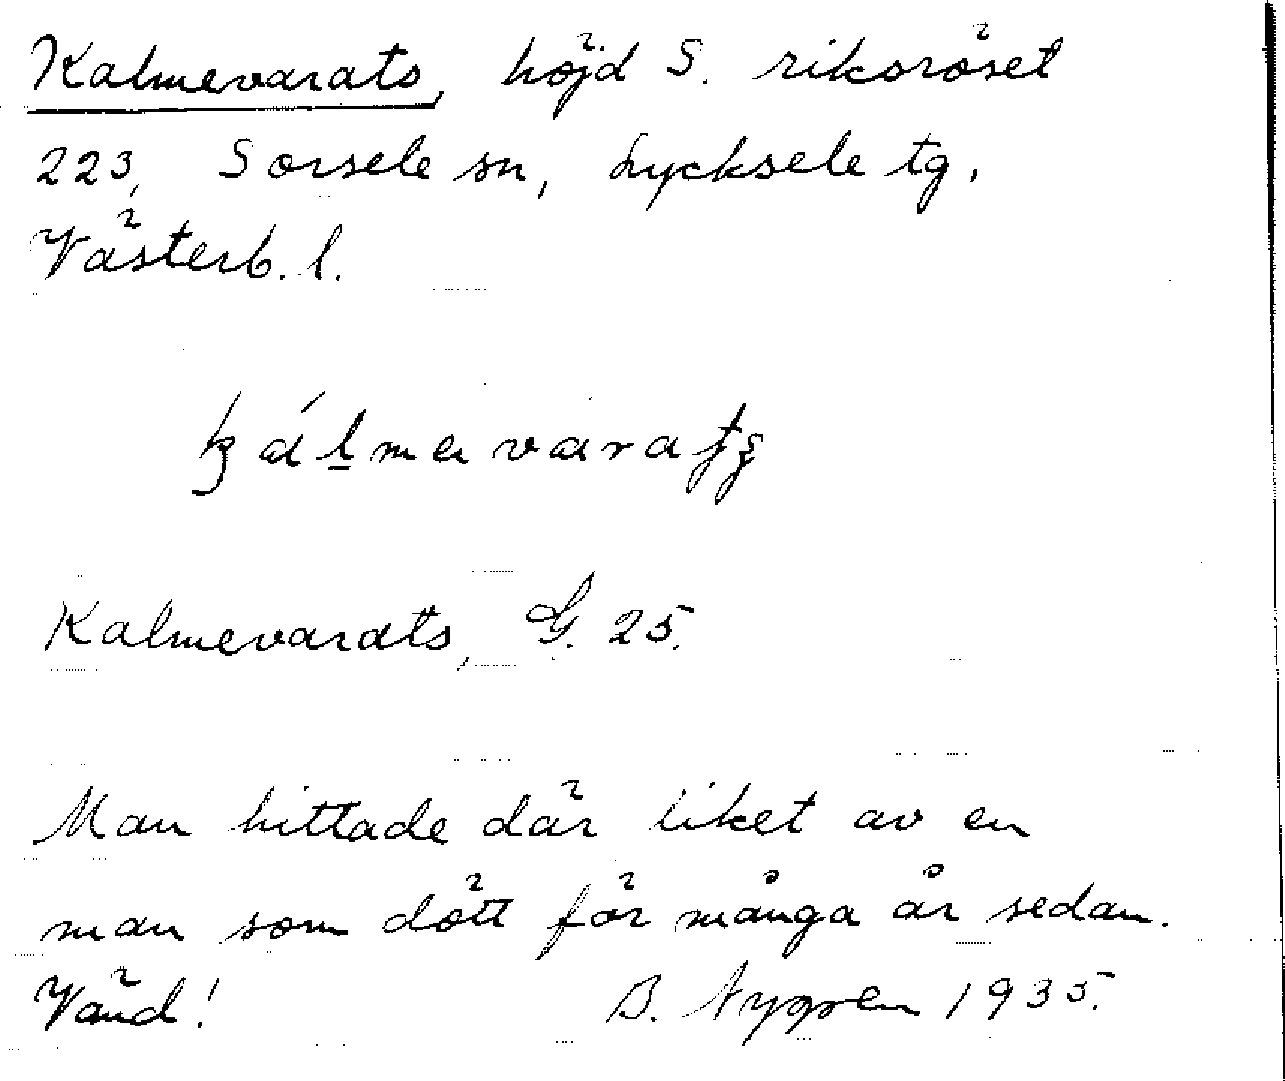 Kalmevarats, höjd S. riksröset
223, Sorsele sn, Lycksele tg,
Västerb. l.
Kalmevarats, G. 25.
Man hittade där liket av en
man som dött för många år sedan.
Vänd! B. Nygren 1935.